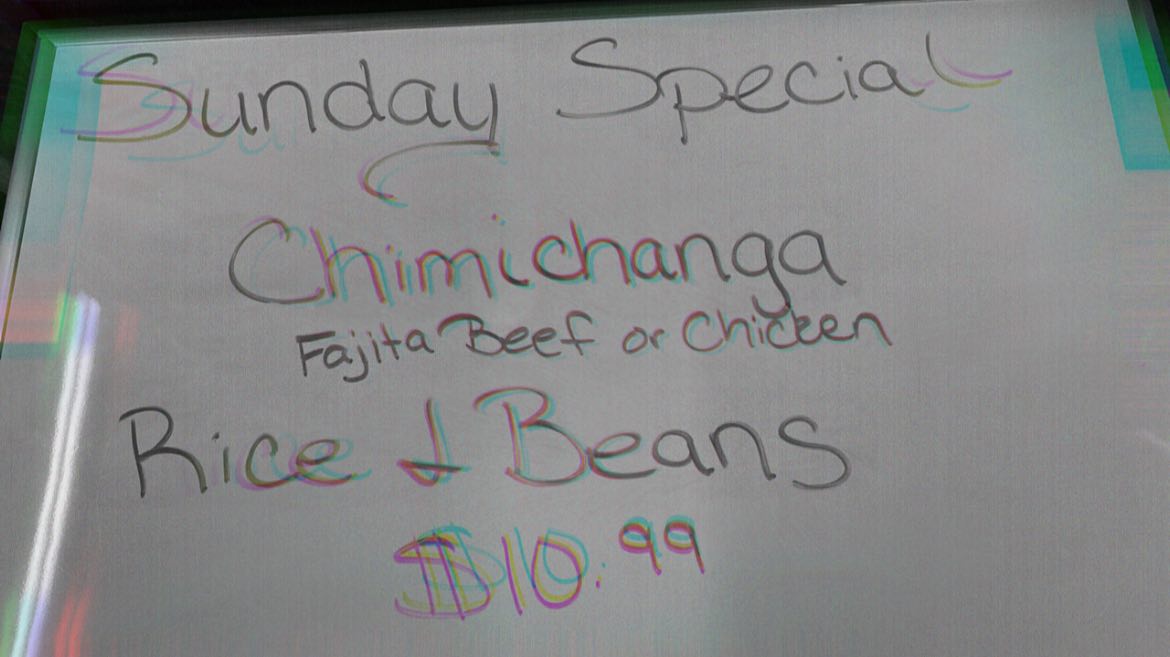 Sunday Special
Chimichanga
Fajita Beef or Chicken
Rice & Beans
$10.99